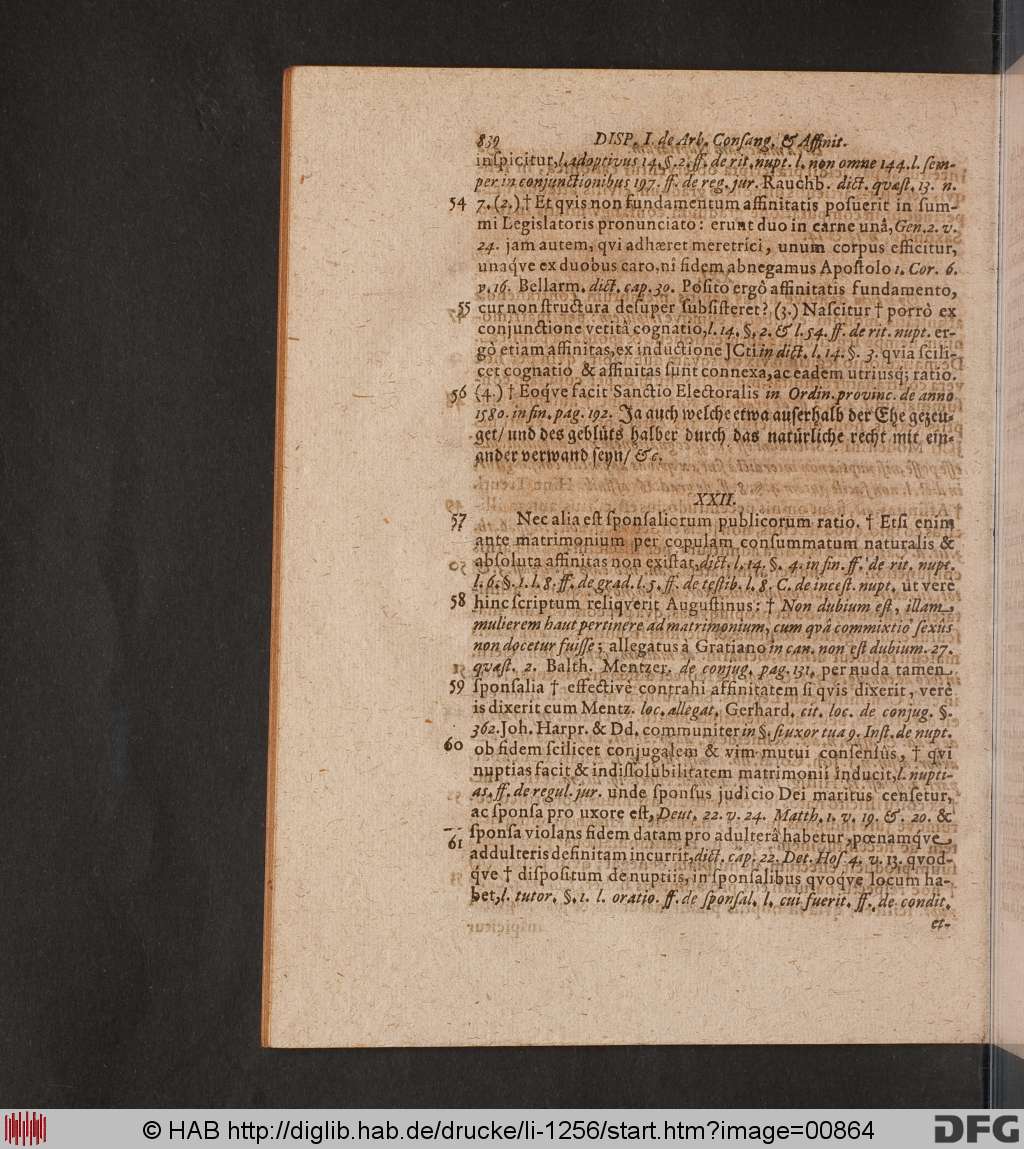 839 DISP. I. de Arb. Consang. & Affinit.
inſpicitur, l. adoptivus 14. §. 2. ff. de rit. nupt. l. non omne 144. l. ſem-
per in conjunctionibus 197. ff. de reg. jur. Rauchb. dict. quæſt. 13. n.
54 7. (2.) † Et qvis non fundamentum affinitatis poſuerit in ſum-
mi Legislatoris pronunciato: erunt duo in carne unâ, Gen. 2. v.
24. jam autem, qvi adhæret meretrici, unum corpus efficitur,
unaqve ex duobus caro, nî fidem abnegamus Apoſtolo 1. Cor. 6.
v. 16. Bellarm. dict. cap. 30. Poſito ergô affinitatis fundamento,
55 cur non ſtructura deſuper ſubſiſteret? (3.) Naſcitur † porrò ex
conjunctione vetitâ cognatio, l. 14. §. 2. & l. 54. ff. de rit. nupt. er-
gò etiam affinitas, ex inductione JCti in dict. l. 14. §. 3. qvia ſcili-
cet cognatio & affinitas ſunt connexa, ac eadem utriusq; ratio.
56 (4.) † Eoqve facit Sanctio Electoralis in Ordin. provinc. de anno
1580. in fin. pag. 192. Ja auch welche etwa auſerhalb der Ehe gezeu-
get/ und des geblüts halber durch das natürliche recht mit ein-
ander verwand ſeyn/ &c.
XXII.
57 Nec alia eſt ſponſaliorum publicorum ratio. † Etſi enim
ante matrimonium per copulam conſummatum naturalis &
abſoluta affinitas non exiſtat, dict. l. 14. §. 4. in fin. ff. de rit. nupt.
l. 6. §. 1. l. 8. ff. de grad. l. 5. ff. de teſtib. l. 8. C. de inceſt. nupt. ut verè
58 hinc ſcriptum reliqverit Auguſtinus: † Non dubium eſt, illam
mulierem haut pertinere ad matrimonium, cum quâ commixtio ſexûs
non docetur fuiſſe; allegatus à Gratiano in can. non eſt dubium. 27.
quæſt. 2. Balth. Mentzer. de conjug. pag. 131. per nuda tamen
59 ſponſalia † effectivè contrahi affinitatem ſi qvis dixerit, verè
is dixerit cum Mentz. loc. allegat. Gerhard. cit. loc. de conjug. §.
362. Joh. Harpr. & Dd. communiter in §. ſi uxor tua 9. Inſt. de nupt.
60 ob fidem ſcilicet conjugalem & vim mutui conſenſûs, † qvi
nuptias facit & indiſſolubilitatem matrimonii inducit, l. nupti-
as. ff. de regul. jur. unde ſponſus judicio Dei maritus cenſetur,
ac ſponſa pro uxore eſt, Deut. 22. v. 24. Matth. 1. v. 19. & 20. &
ſponſa violans fidem datam pro adulterâ habetur, pœnamqve
61 addulteris definitam incurrit, dict. cap. 22. Det. Hoſ 4. v. 13. qvod-
qve † diſpoſitum de nuptiis, in ſponſalibus qvoqve locum ha-
bet, l. tutor. §. 1. l. oratio. ff. de ſponſal. l. cui fuerit. ff. de condit.
et-
© HAB http://diglib.hab.de/drucke/li-1256/start.htm?image=00864
DFG